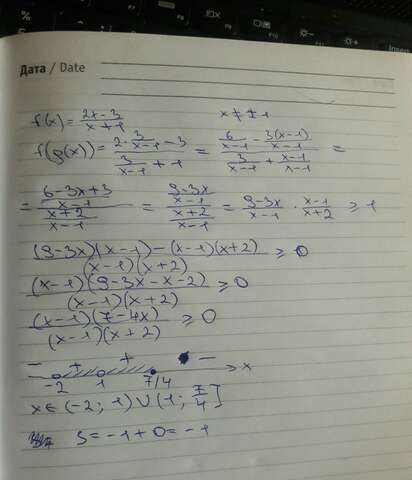 Дата / Date
f(x) = (2x-3)/(x+1)    x ≠ ±1
f(g(x)) = (2·3/(x-1) - 3)/(3/(x-1) + 1) = (6/(x-1) - 3(x-1)/(x-1))/(3/(x-1) + (x-1)/(x-1)) =
= ((6-3x+3)/(x-1))/((x+2)/(x-1)) = ((9-3x)/(x-1))/((x+2)/(x-1)) = (9-3x)/(x-1) · (x-1)/(x+2) ≥ 1
((9-3x)(x-1)-(x-1)(x+2))/((x-1)(x+2)) ≥ 0
((x-1)(9-3x-x-2))/((x-1)(x+2)) ≥ 0
((x-1)(7-4x))/((x-1)(x+2)) ≥ 0
- + + -
-2 1 7/4 x
x ∈ (-2; 1) ∪ (1; 7/4]
S = -1 + 0 = -1